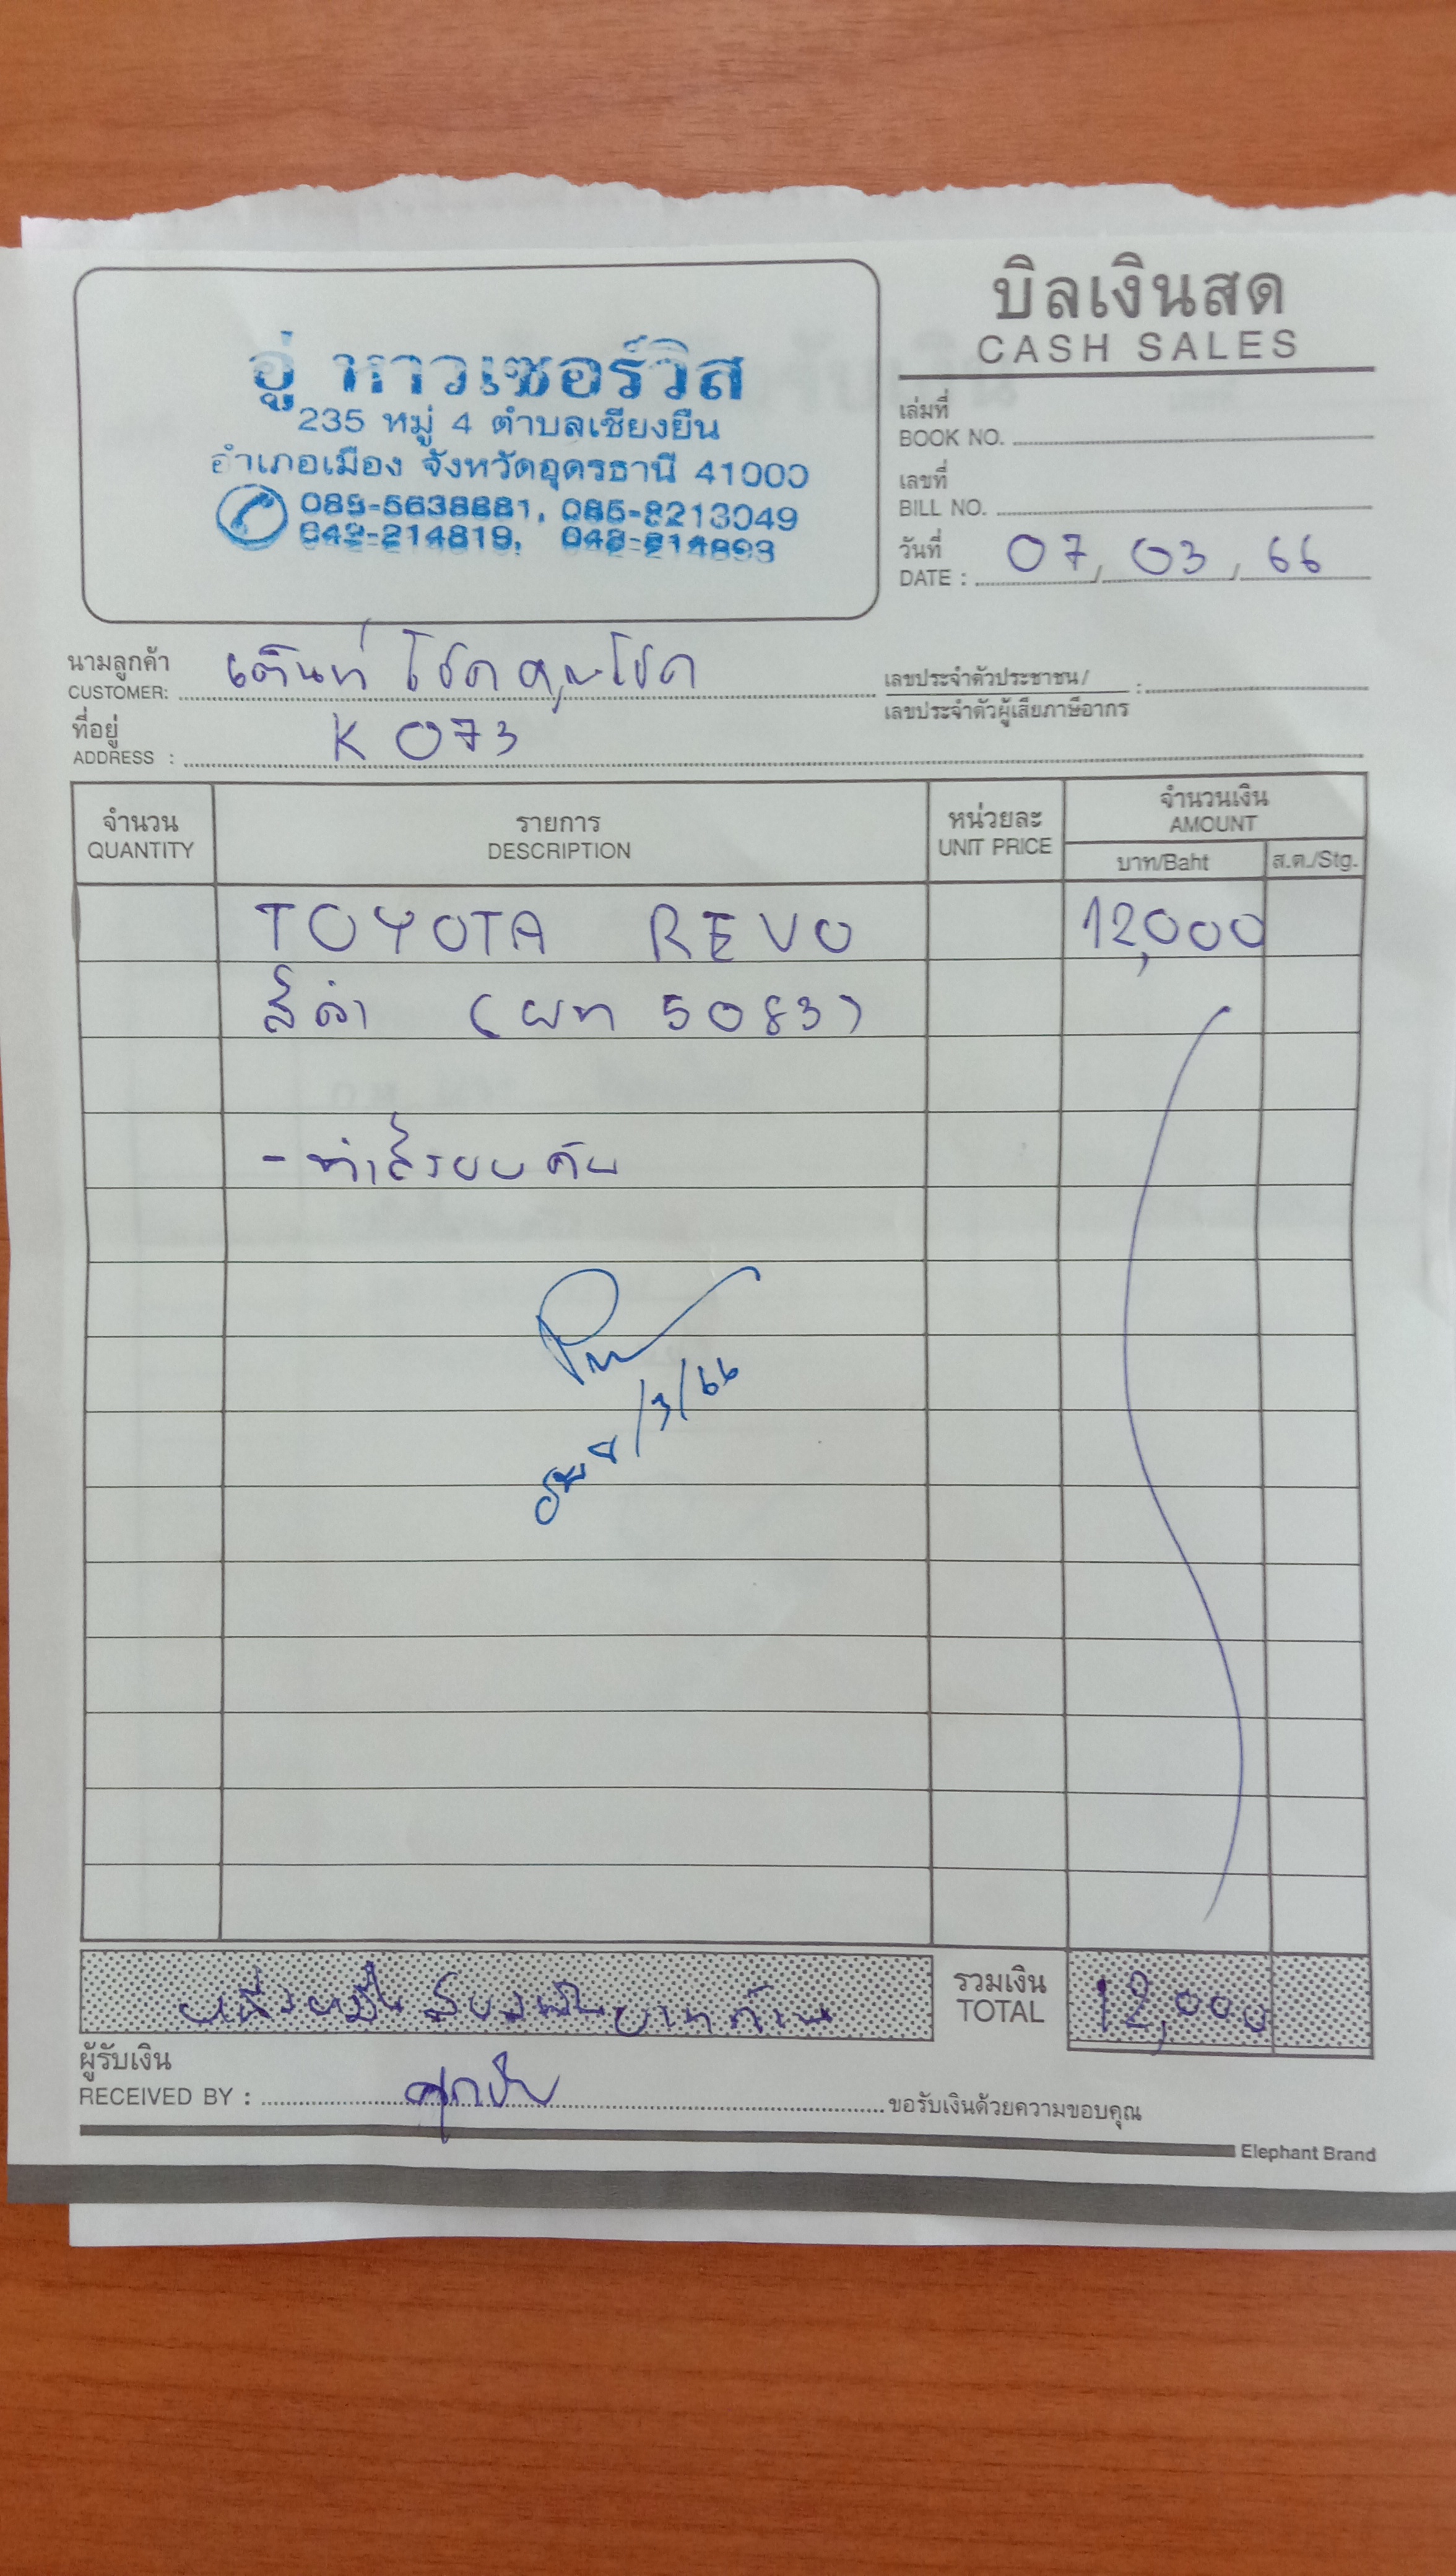 บิลเงินสด
CASH SALES
อู่ หาวเซอร์วิส
235 หมู่ 4 ตำบลเชียงยืน
อำเภอเมือง จังหวัดอุดรธานี 41000
เล่มที่
BOOK NO.
เลขที่
BILL NO.
วันที่
DATE : 07/03/66
นามลูกค้า
CUSTOMER: เต็นท์ โชคคูณโชค
เลขประจำตัวประชาชน/
เลขประจำตัวผู้เสียภาษีอากร :
ที่อยู่
ADDRESS : K 073
จำนวน รายการ หน่วยละ จำนวนเงิน
QUANTITY DESCRIPTION UNIT PRICE AMOUNT
บาท/Baht ส.ต./Stg.
TOYOTA REVO 12,000
สีดำ (ผท 5083)
- ทำสีรอบคัน
8/3/66
หนึ่งหมื่นสองพันบาทถ้วน
รวมเงิน
TOTAL 12,000
ผู้รับเงิน
RECEIVED BY : ขอรับเงินด้วยความขอบคุณ
Elephant Brand